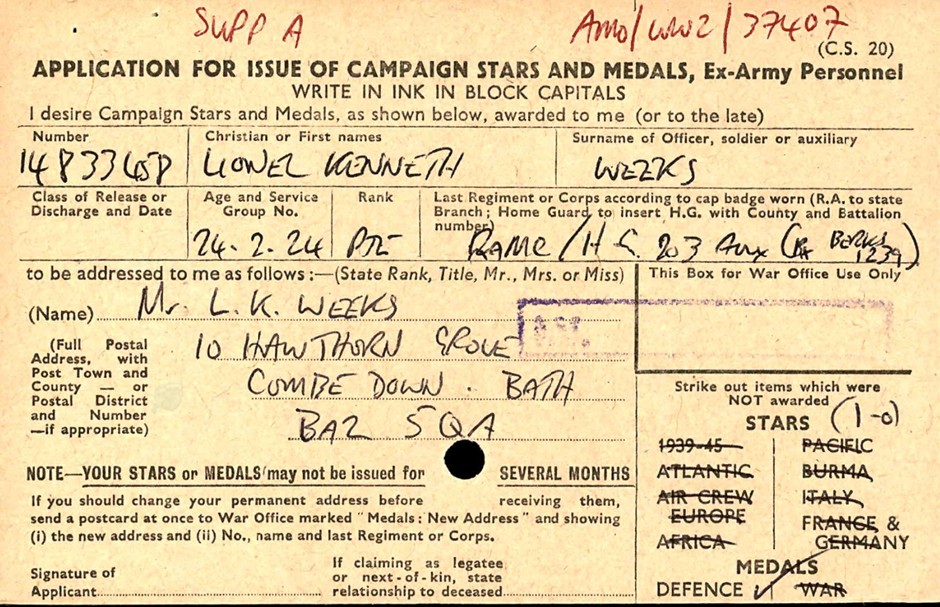 SUPP A
AMO/WW2/37407
(C.S. 20)
APPLICATION FOR ISSUE OF CAMPAIGN STARS AND MEDALS, Ex-Army Personnel
WRITE IN INK IN BLOCK CAPITALS
I desire Campaign Stars and Medals, as shown below, awarded to me (or to the late)
Number
14833458
Christian or First names
LIONEL KENNETH
Surname of Officer, soldier or auxiliary
WEEKS
Class of Release or
Discharge and Date
Age and Service
Group No.
24.2.24
Rank
PTE
Last Regiment or Corps according to cap badge worn (R.A. to state
Branch; Home Guard to insert H.G. with County and Battalion
number)
RAMC / H.G. 203 (BERKS
1239)
to be addressed to me as follows:—(State Rank, Title, Mr., Mrs. or Miss)
(Name) Mr. L. K. WEEKS
(Full Postal
Address, with
Post Town and
County — or
Postal District
and Number
—if appropriate)
10 HAWTHORN GROVE
COMBE DOWN. BATH
BA2 5QA
This Box for War Office Use Only
NOTE—YOUR STARS or MEDALS may not be issued for SEVERAL MONTHS
If you should change your permanent address before receiving them,
send a postcard at once to War Office marked "Medals: New Address" and showing
(i) the new address and (ii) No., name and last Regiment or Corps.
Signature of
Applicant
If claiming as legatee
or next-of-kin, state
relationship to deceased
Strike out items which were
NOT awarded
STARS (1-0)
1939-45
ATLANTIC
AIR CREW
EUROPE
AFRICA
PACIFIC
BURMA
ITALY
FRANCE &
GERMANY
MEDALS
DEFENCE ✓ WAR